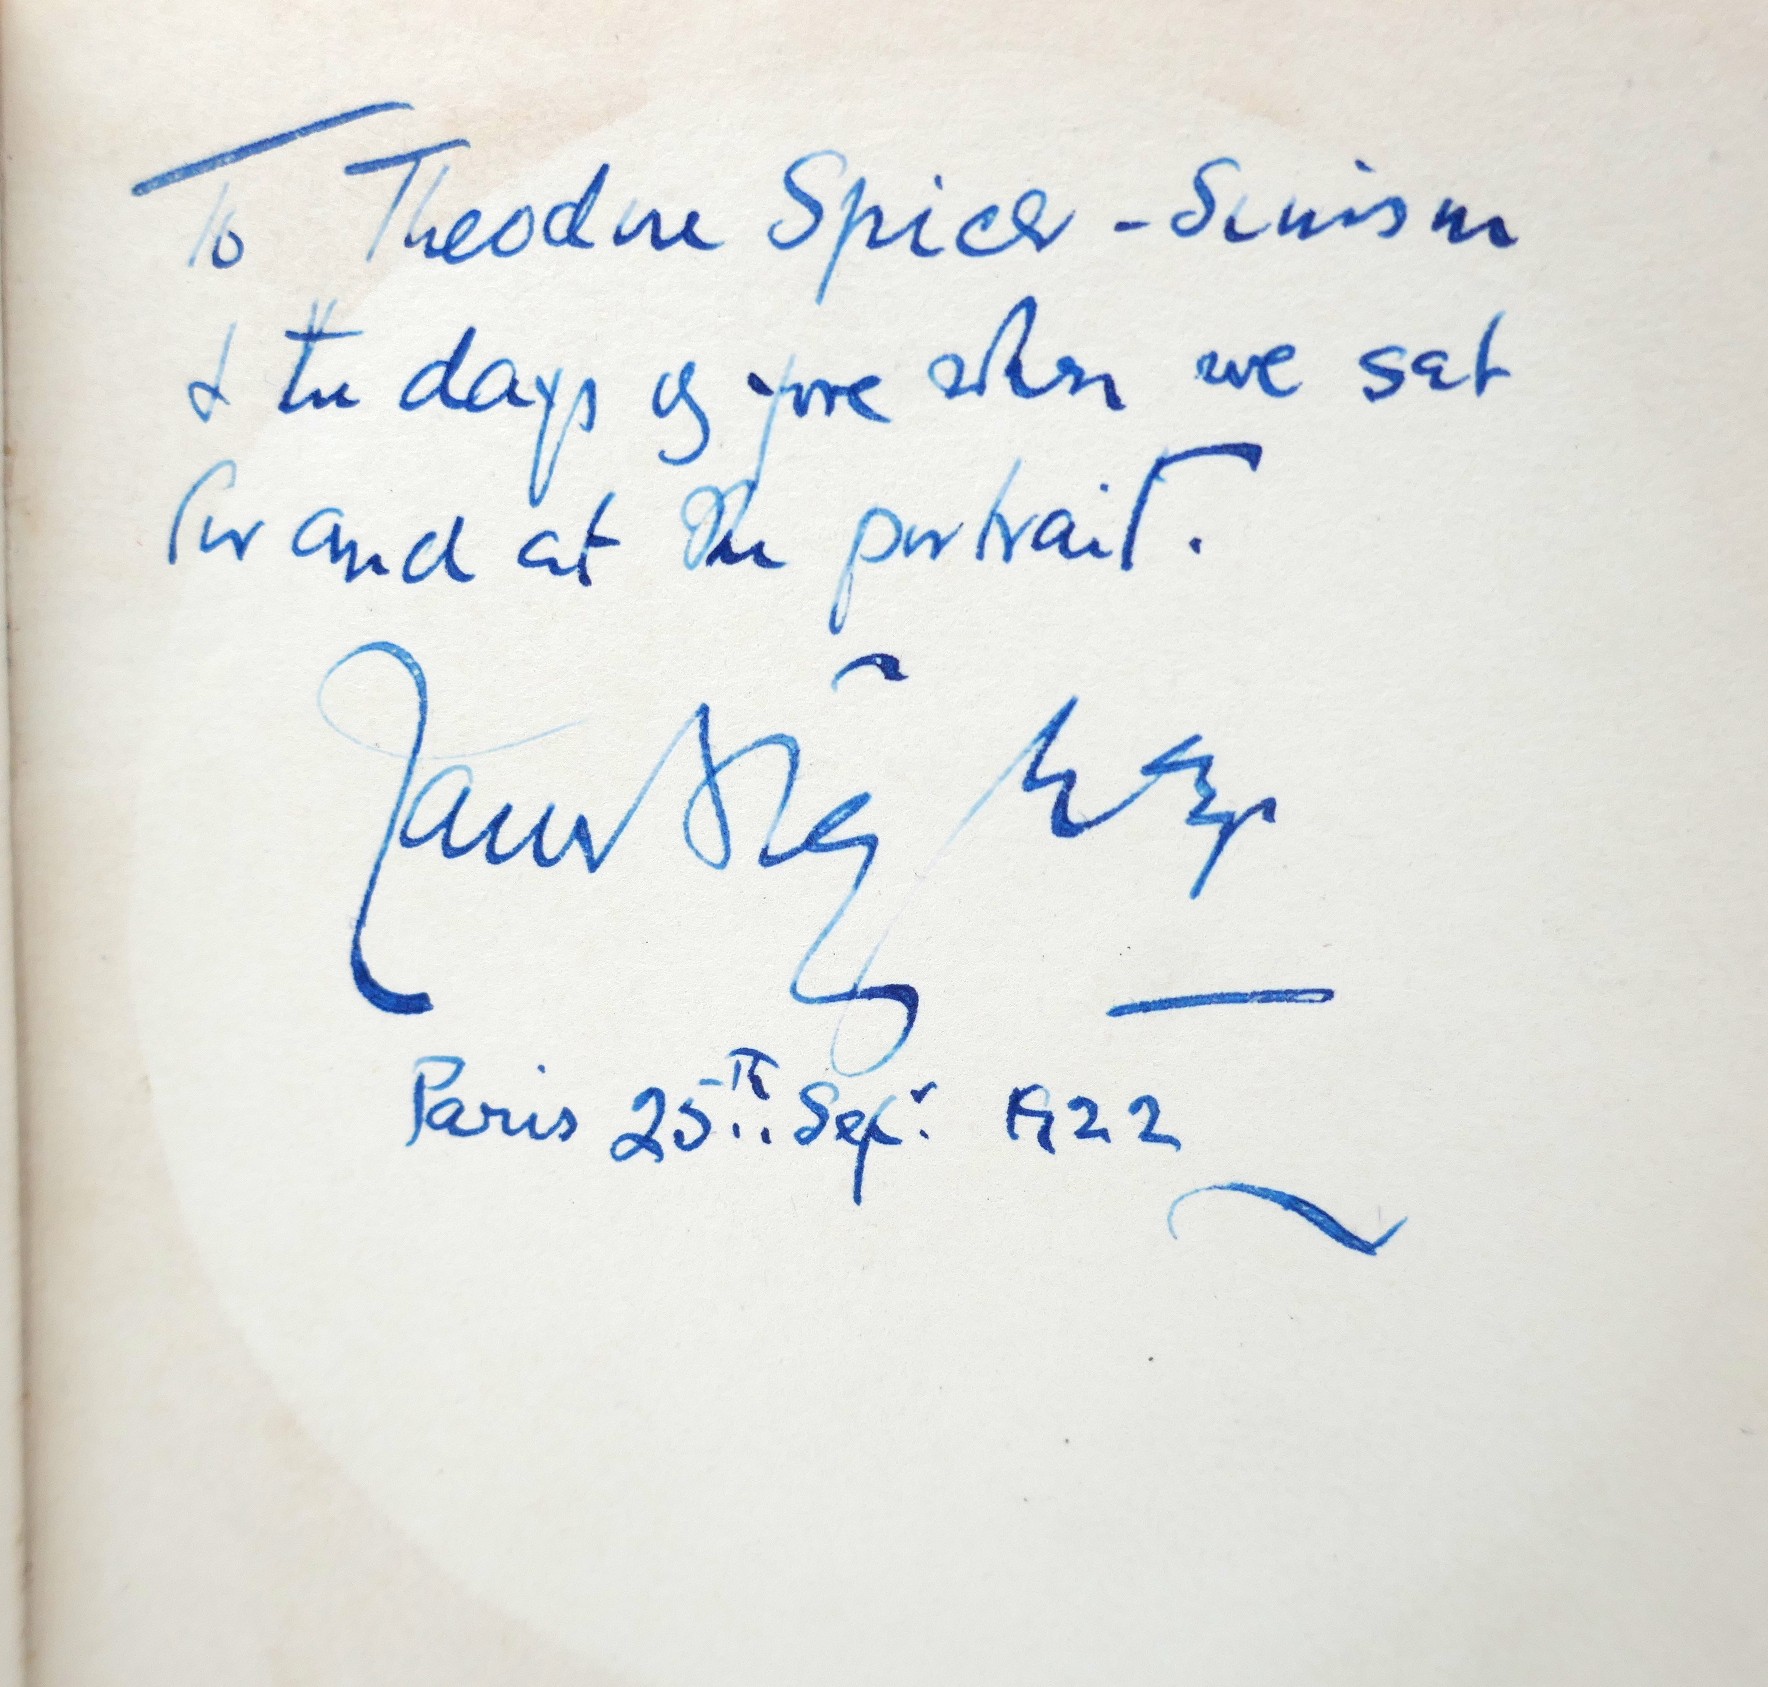 To Theodore Spicer - Simson
& the days of yore when we sat
for and at the portrait.
James Stephens
Paris 25th. Sept. 1922